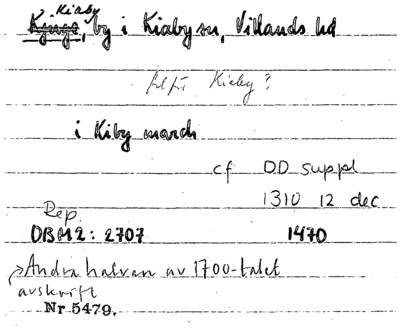 Kiaby
Kjuge, by i Kiaby sn, Villands hd
fel för Kiaby?
i Kiby march
cf DD suppl
1310 12 dec
Rep.
DBM2: 2707 1470
Andra halvan av 1700-talet
avskrift
Nr 5479.